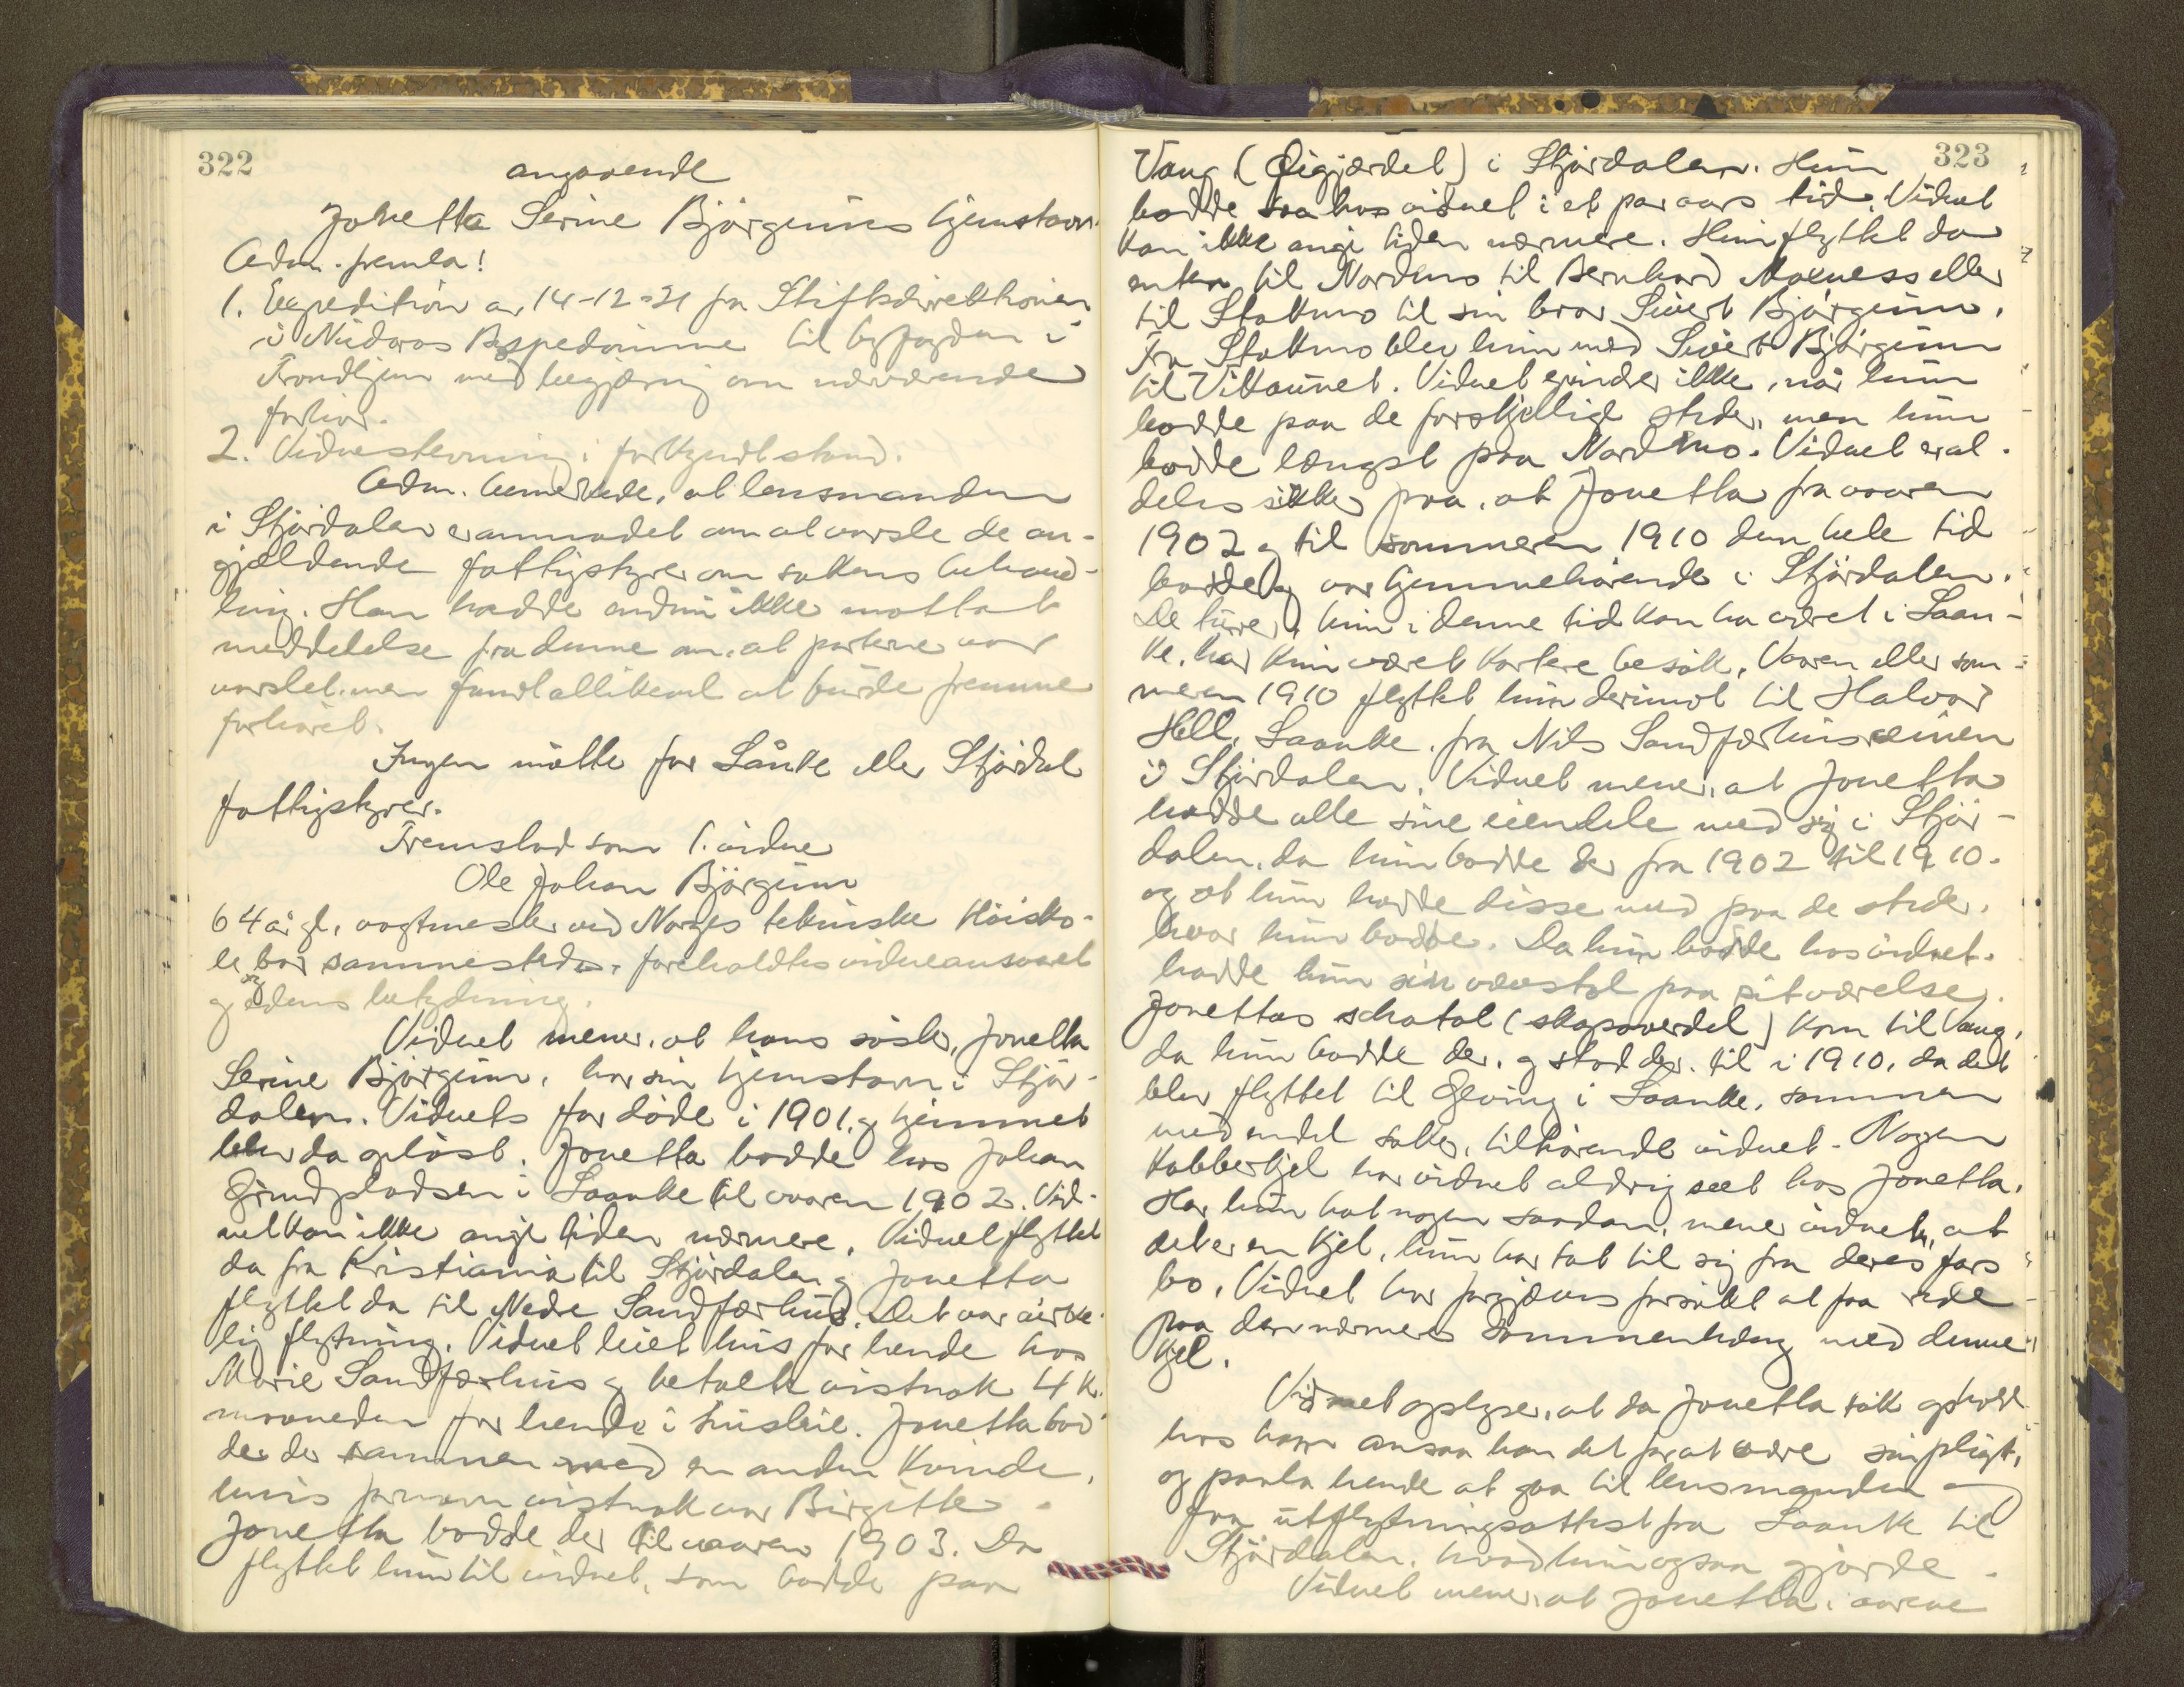 322
angaaende
Jonetta Serine Björgums hjemstavn.
Adm. fremla!
1. Expedition av 14-12-21 fra Stiftsdirektionen
i Nidaros Bispedömme til byfogden i
Trondhjem med begjæring om nærværende
forhör.
2. Vidnestevning i forkyndt stand.
Adm. bemerkede, at lensmanden
i Stjördalen er anmodet om at varsle de an-
gjældende fattigstyrer om sakens behand-
ling. Han hadde endnu ikke mottat
meddelelse fra denne om, at parterne var
varslet, men fandt allikevel at burde fremme
forhöret.
Ingen mötte for Lånke eller Stjördal
fattigstyrer.
Fremstod som 1. vidne
Ole Johan Björgum
64 år gl. vagtmester ved Norges tekniske Höisko-
le, bor sammesteds, foreholdtes vidneansvaret
og edens betydning.
Vidnet mener, at hans söster, Jonetta
Serine Björgum, har sin hjemstavn i Stjör-
dalen. Vidnets far döde i 1901, og hjemmet
blev da oplöst. Jonetta bodde hos Johan
Grundpladsen i Laanke til vaaren 1902. Vid-
net kan ikke angi tiden nærmere. Vidnet flyttet
da fra Kristiania til Stjördalen og Jonetta
flyttet da til Nedre Sandfærhus. Det var virke-
lig flytning. Vidnet leiet hus for hende hos
Marie Sandfærhus og betalte vistnok 4 kr.
maaneden for hende i husleie. Jonetta bod
de der sammen med en anden kvinde,
hvis fornavn vistnok var Birgitte.
Jonetta bodde der til vaaren 1903. Da
flyttet hun til vidnet, som bodde paa
323
Vang (Öigjærdet) i Stjördalen. Hun
bodde saa hos vidnet i et par aars tid. Vidnet
kan ikke angi tiden nærmere. Hun flyttet da
enten til Nordmo til Bernhard Moxness eller
til Stokmo til sin bror Sivert Björgum.
Fra Stokmo blev hun med Sivert Björgum
til Viktaunet. Vidnet erindrer ikke, når hun
bodde paa de forskjellige steder, men hun
bodde længst paa Nordmo. Vidnet er al-
deles sikker paa, at Jonetta fra vaaren
1902 og til sommeren 1910 den hele tid
bodde og var hjemmehörende i Stjördalen.
De turer, hun i denne tid kan ha været i Laan-
ke, har kun været kortere besök. Vaaren eller som-
meren 1910 flyttet hun derimot til Halvor
Hell, Laanke, fra Nils Sandfærhus
i Stjördalen. Vidnet mener, at Jonetta
hadde alle sine eiendele med sig i Stjör-
dalen, da hun bodde der fra 1902 til 1910.
og at hun hadde disse med paa de steder,
hvor hun bodde. Da hun bodde hos vidnet,
hadde hun sin vævstol paa sit værelse.
Jonettas schatol (skapoverdel) kom til Vang,
da hun bodde der, og stod der til i 1910, da det
blev flyttet til Geving i Laanke, sammen
med endel saker, tilhörende vidnet. Nogen
kobberkjel har vidnet aldrig seet hos Jonetta.
Har hun hat nogen saadan, mener vidnet, at
det er en kjel, hun har tat til sig fra deres fars
bo. Vidnet har forgjæves forsökt at faa rede
paa den nærmere sammenhæng med denne
kjel.
Vidnet oplyser, at da Jonetta tok ophold
hos ham ansaa han det for at være sin pligt,
og paala hende at gaa til lensmanden og
faa utflytningsattest fra Laanke til
Stjördalen, hvad hun ogsaa gjorde.
Vidnet mener, at Jonetta i aarene